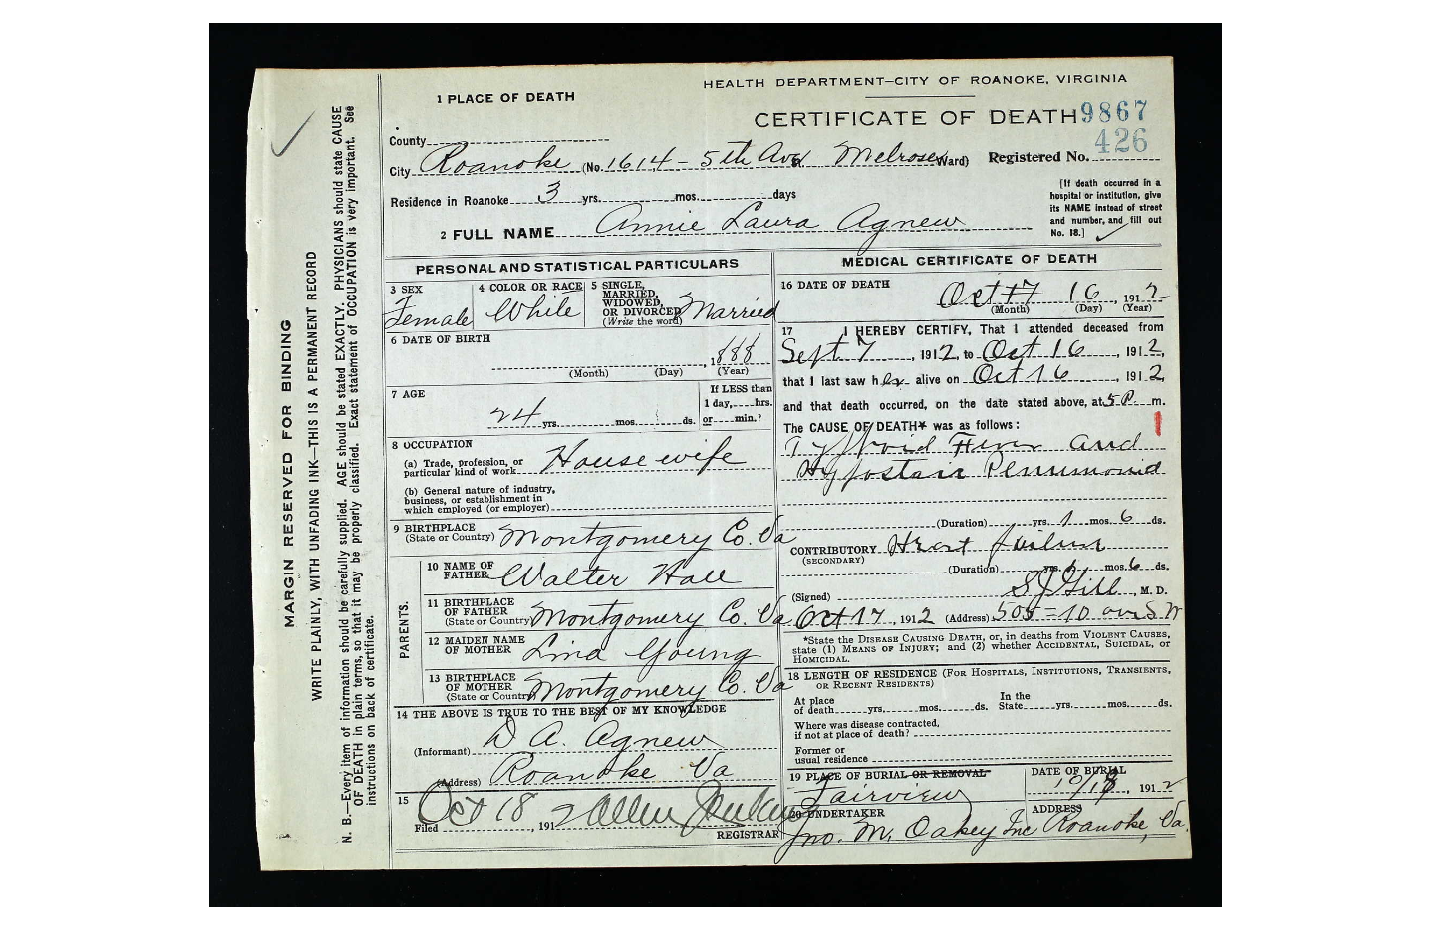 HEALTH DEPARTMENT—CITY OF ROANOKE, VIRGINIA
1 PLACE OF DEATH
CERTIFICATE OF DEATH 9867
County
426
City Roanoke (No. 1614 - 5th Ave Melrose Ward) Registered No.
Residence in Roanoke 3 yrs. mos. days
[If death occurred in a
hospital or institution, give
its NAME instead of street
and number, and fill out
No. 18.]
2 FULL NAME Annie Laura Agnew
PERSONAL AND STATISTICAL PARTICULARS
3 SEX
Female
4 COLOR OR RACE
White
5 SINGLE,
MARRIED,
WIDOWED,
OR DIVORCED
(Write the word)
Married
6 DATE OF BIRTH
, 1888
(Month) (Day) (Year)
7 AGE
24 yrs. mos. ds.
If LESS than
1 day, hrs.
or min.?
8 OCCUPATION
(a) Trade, profession, or
particular kind of work House wife
(b) General nature of industry,
business, or establishment in
which employed (or employer)
9 BIRTHPLACE
(State or Country) Montgomery Co. Va
PARENTS.
10 NAME OF
FATHER Walter Hall
11 BIRTHPLACE
OF FATHER
(State or Country) Montgomery Co. Va
12 MAIDEN NAME
OF MOTHER Lina Young
13 BIRTHPLACE
OF MOTHER
(State or Country) Montgomery Co. Va
14 THE ABOVE IS TRUE TO THE BEST OF MY KNOWLEDGE
(Informant) D A. Agnew
(Address) Roanoke Va
15
Filed Oct 18, 1912 Allen
REGISTRAR
MEDICAL CERTIFICATE OF DEATH
16 DATE OF DEATH
Oct 17 16, 1912
(Month) (Day) (Year)
17 I HEREBY CERTIFY, That I attended deceased from
Sept 7, 1912, to Oct 16, 1912,
that I last saw her alive on Oct 16, 1912,
and that death occurred, on the date stated above, at 5 P. m.
The CAUSE OF DEATH* was as follows:
1
Typhoid Fever and
Hypostatic Pneumonia
(Duration) yrs. 1 mos. 6 ds.
CONTRIBUTORY Heart failure
(SECONDARY)
(Duration) yrs. mos. 6 ds.
(Signed) S J Gill, M. D.
Oct 17, 1912 (Address) 505 - 10 ave S W
*State the DISEASE CAUSING DEATH, or, in deaths from VIOLENT CAUSES,
state (1) MEANS OF INJURY; and (2) whether ACCIDENTAL, SUICIDAL, or
HOMICIDAL.
18 LENGTH OF RESIDENCE (FOR HOSPITALS, INSTITUTIONS, TRANSIENTS,
OR RECENT RESIDENTS)
At place
of death yrs. mos. ds.
In the
State yrs. mos. ds.
Where was disease contracted,
if not at place of death?
Former or
usual residence
19 PLACE OF BURIAL OR REMOVAL
Fairview
DATE OF BURIAL
10/18, 1912
20 UNDERTAKER
Jno. M. Oakey Inc
ADDRESS
Roanoke, Va.
MARGIN RESERVED FOR BINDING
WRITE PLAINLY, WITH UNFADING INK—THIS IS A PERMANENT RECORD
N. B.—Every item of information should be carefully supplied. AGE should be stated EXACTLY. PHYSICIANS should state CAUSE
OF DEATH in plain terms, so that it may be properly classified. Exact statement of OCCUPATION is very important. See
instructions on back of certificate.